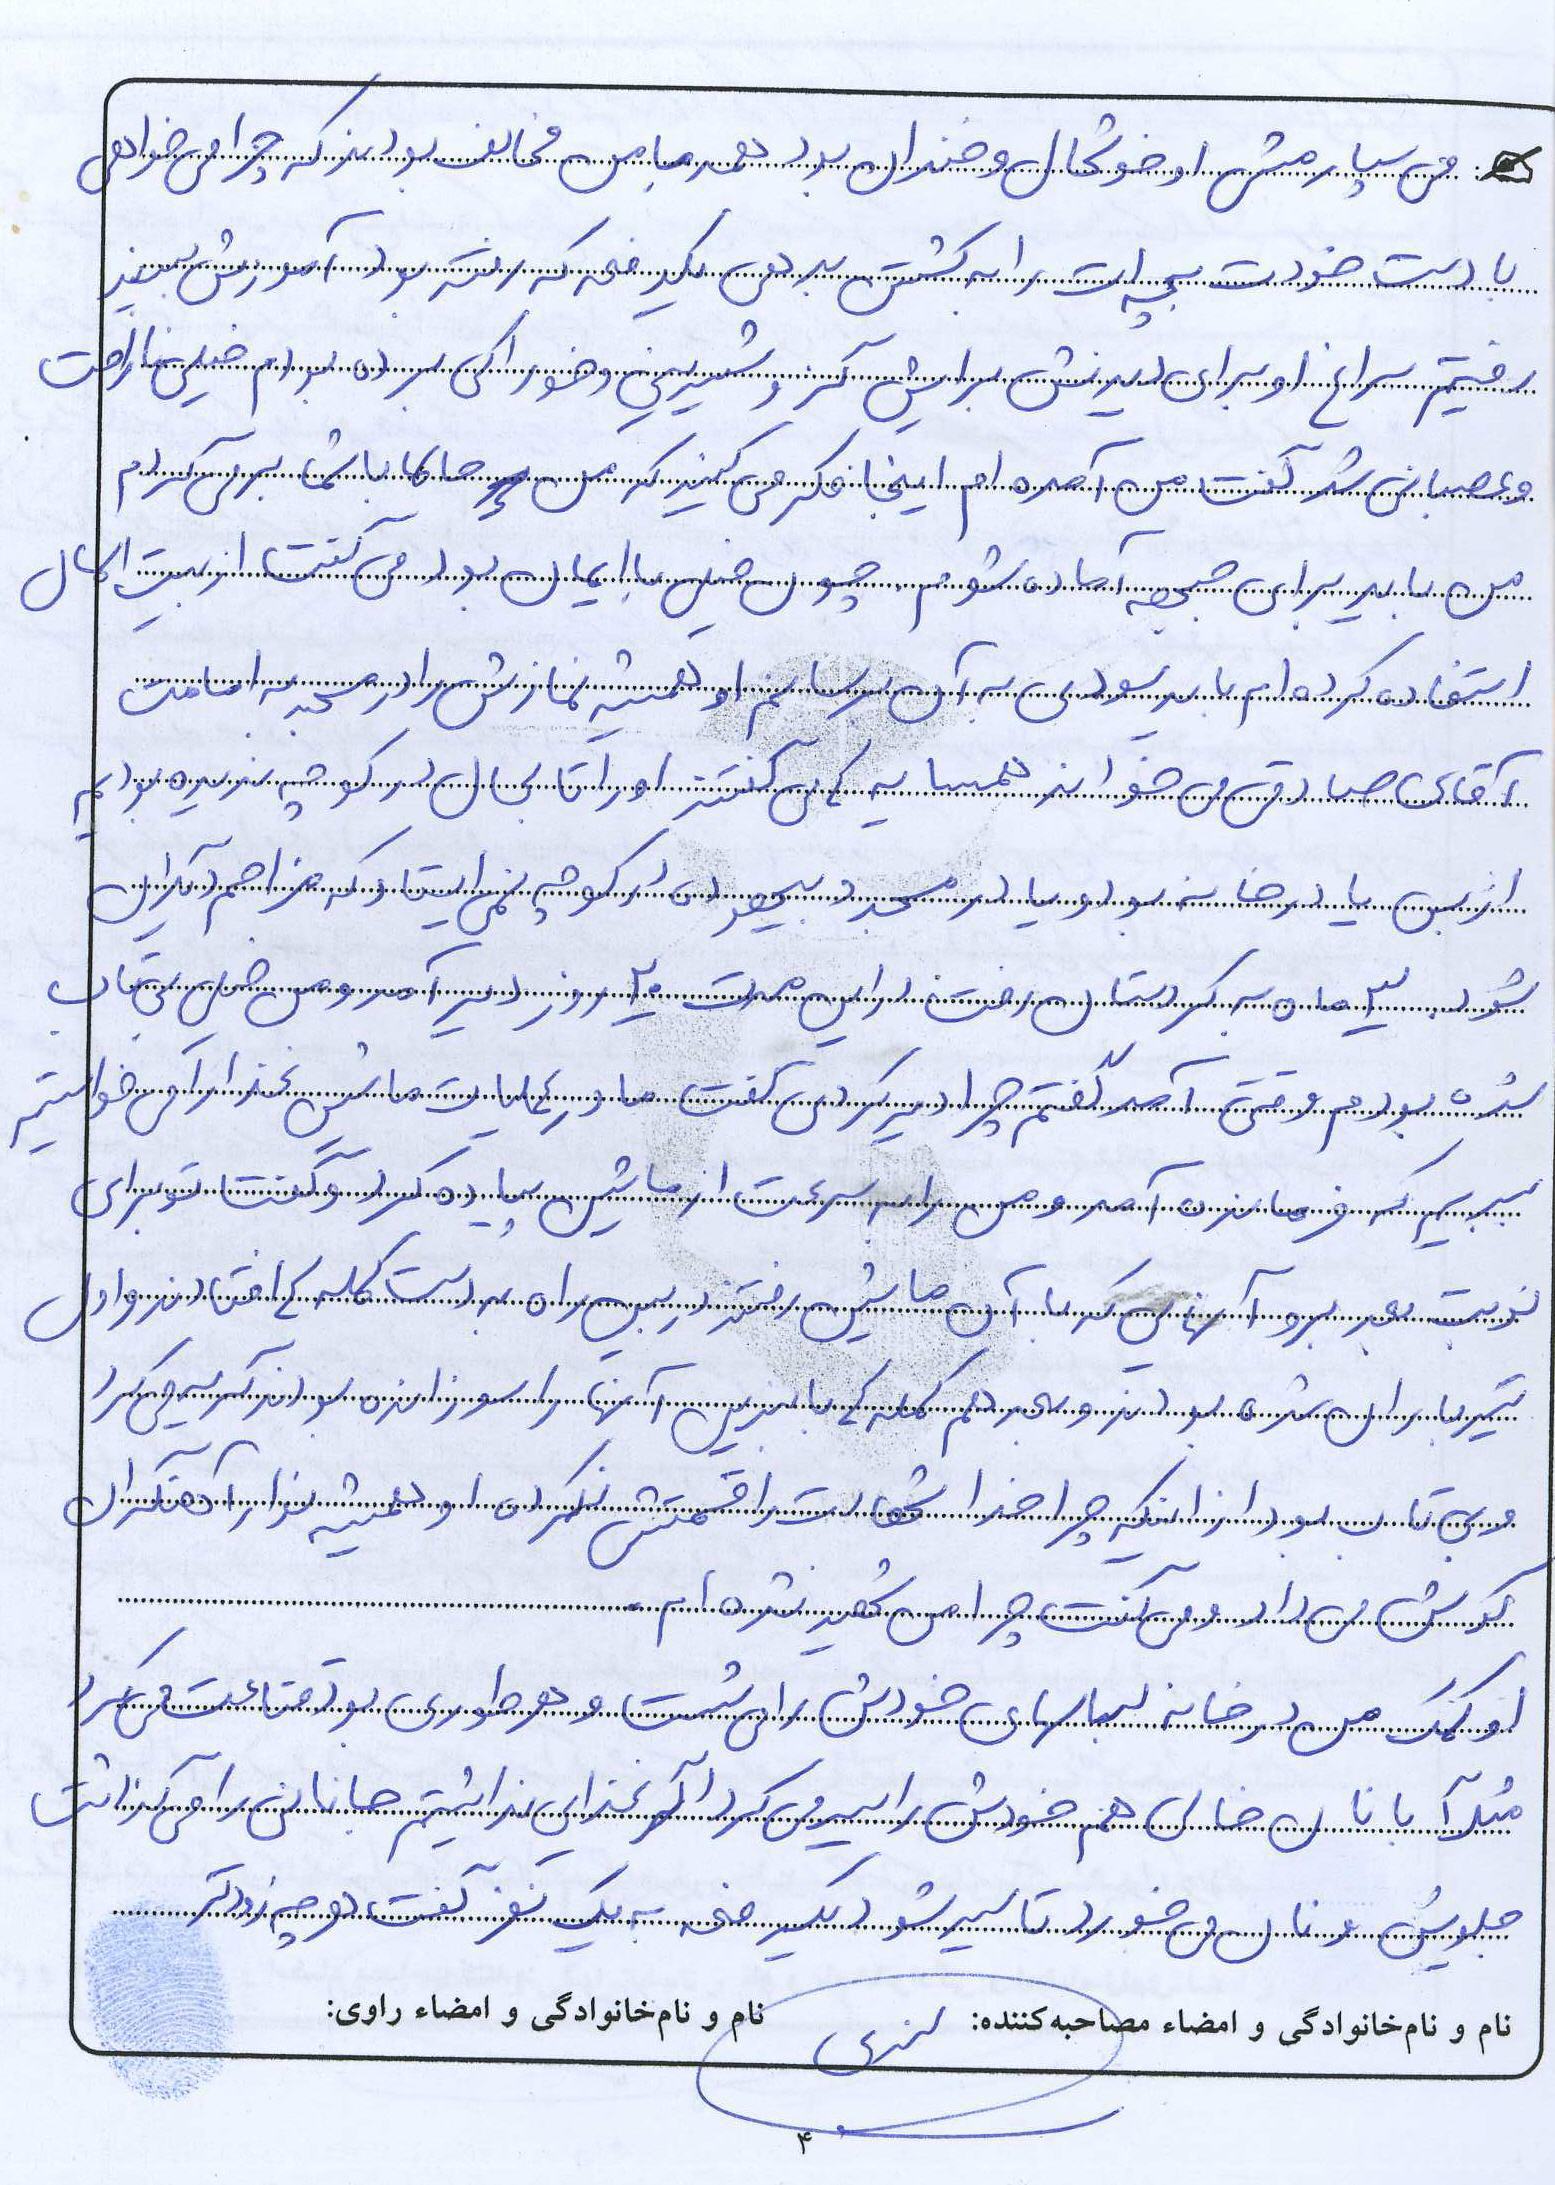 می سپارمش او خوشحال و خندان بود همه با من مخالف بودند که چرا می خواهی
با دست خودت بچه ات را به کشتن بدهی یکدفعه که رفته بود آموزش ببیند
رفتیم سراغ او برای دیدنش برایش گز و شیرینی و خوراکی برده بودم خیلی ناراحت
و عصبانی شد گفت من آمده ام اینجا فکر می کنید که من حالا با شما برمی گردم
من باید برای جبهه آماده شوم. چون خیلی با ایمان بود می گفت از بیت المال
استفاده کرده ام باید سودی به آن برسانم او همیشه نمازش را در مسجد به امامت
آقای صادقی می خواند همسایه ها می گفتند او را تا بحال در کوچه ندیده بودیم
از بس یا در خانه بود و یا در مسجد و بیهوده در کوچه نمی ایستاد که مزاحم دیگران
شود. ۳ ماه به کردستان رفت در این مدت ۲۰ روز دیر آمد و من خیلی بی تاب
شده بودم وقتی آمد گفتم چرا دیر کردی گفت ما در عملیات ماشین غذا را می خواستیم
ببریم که فرمانده آمد و من را به سرعت از ماشین پیاده کرد و گفت تو برای
نوبت بعد برو آنهایی که با آن ماشین رفتند در بین راه به دست کمله ها افتادند و اول
تیرباران شده بودند و بعد هم کمله ها با بنزین آنها را سوزانده بودند گریه می کرد
و بی تاب بود از اینکه چرا خدا شهادت را قسمتش نکرده او همیشه نوار آهنگران
گوش می داد و می گفت چرا من شهید نشده ام.
او کمک من در خانه لباسهای خودش را می شست و هر طوری بود قناعت می کرد
مثلاً با نان خالی هم خودش را سیر می کرد اگر غذایی نداشتیم جانانی را می گذاشت
جلویش و نان می خورد تا سیر شود یکدفعه به یک نفر گفت هر چه زودتر
نام و نام خانوادگی و امضاء مصاحبه کننده:
نام و نام خانوادگی و امضاء راوی:
۴